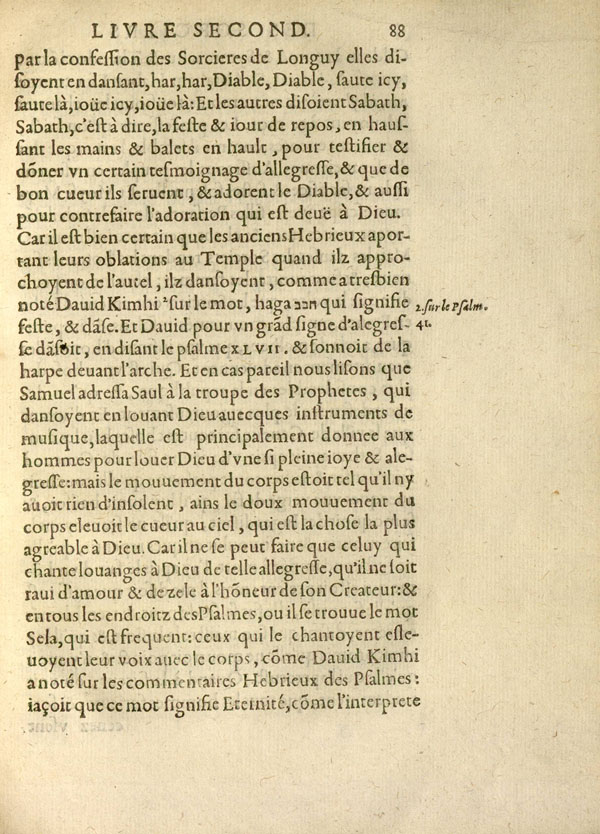 LIVRE SECOND. 88
par la confeſſion des Sorcieres de Longuy elles di-
ſoyent en danſant, har, har, Diable, Diable, ſaute icy,
ſaute là, ioüe icy, ioüe là: Et les autres diſoient Sabath,
Sabath, c'eſt à dire, la feſte & iour de repos, en hauſ-
ſant les mains & balets en hault, pour teſtifier &
dõner vn certain teſmoignage d'allegreſſe, & que de
bon cueur ils ſeruent, & adorent le Diable, & auſſi
pour contrefaire l'adoration qui eſt deuë à Dieu.
Car il eſt bien certain que les anciens Hebrieux apor-
tant leurs oblations au Temple quand ilz appro-
choyent de l'autel, ilz danſoyent, comme a treſbien
noté Dauid Kimhi ² ſur le mot, haga חגג qui ſignifie
2. ſur le Pſalm.
feſte, & dãſe. Et Dauid pour vn grãd ſigne d'alegreſ-
42.
ſe dãſoit, en diſant le pſalme XLVII. & ſonnoit de la
harpe deuant l'arche. Et en cas pareil nous liſons que
Samuel adreſſa Saul à la troupe des Prophetes, qui
danſoyent en louant Dieu auecques inſtruments de
muſique, laquelle eſt principalement donnee aux
hommes pour louer Dieu d'vne ſi pleine ioye & ale-
greſſe: mais le mouuement du corps eſtoit tel qu'il ny
auoit rien d'inſolent, ains le doux mouuement du
corps eleuoit le cueur au ciel, qui eſt la choſe la plus
agreable à Dieu. Car il ne ſe peut faire que celuy qui
chante louanges à Dieu de telle allegreſſe, qu'il ne ſoit
raui d'amour & de zele à l'hõneur de ſon Createur: &
en tous les endroitz des Pſalmes, ou il ſe trouue le mot
Sela, qui eſt frequent: ceux qui le chantoyent eſle-
uoyent leur voix auec le corps, cõme Dauid Kimhi
a noté ſur les commentaires Hebrieux des Pſalmes:
iaçoit que ce mot ſignifie Eternité, cõme l'interprete